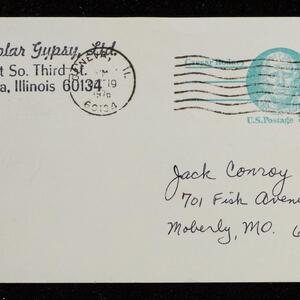 olar Gypsy, Ltd.
t So. Third
a, Illinois 60134
GENEVA, IL
PM
19
1976
60134
Caesar Rodney
U.S. Postage
Jack Conroy
701 Fisk Avenue
Moberly, MO. 6